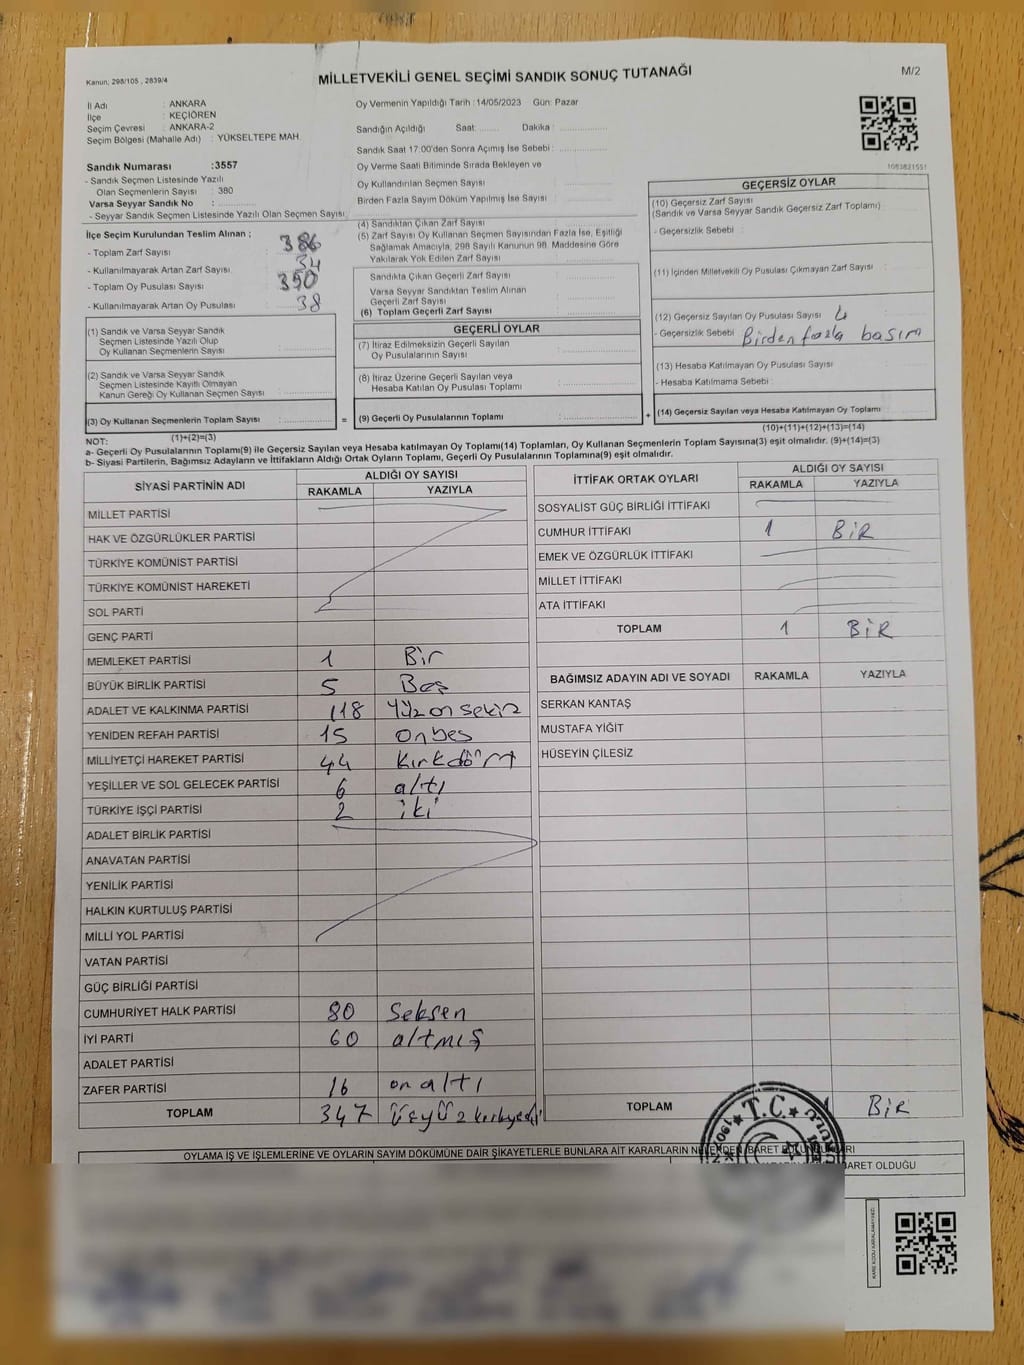 Kanun: 298/105 , 2839/4
MİLLETVEKİLİ GENEL SEÇİMİ SANDIK SONUÇ TUTANAĞI
M/2
İl Adı : ANKARA
İlçe : KEÇİÖREN
Seçim Çevresi : ANKARA-2
Seçim Bölgesi (Mahalle Adı) : YÜKSELTEPE MAH.
Sandık Numarası :3557
- Sandık Seçmen Listesinde Yazılı
Olan Seçmenlerin Sayısı : 380
Varsa Seyyar Sandık No :
- Seyyar Sandık Seçmen Listesinde Yazılı Olan Seçmen Sayısı:
İlçe Seçim Kurulundan Teslim Alınan ;
- Toplam Zarf Sayısı : 386
- Kullanılmayarak Artan Zarf Sayısı : 34
- Toplam Oy Pusulası Sayısı : 390
- Kullanılmayarak Artan Oy Pusulası : 38
(1) Sandık ve Varsa Seyyar Sandık
Seçmen Listesinde Yazılı Olup
Oy Kullanan Seçmenlerin Sayısı :
(2) Sandık ve Varsa Seyyar Sandık
Seçmen Listesinde Kayıtlı Olmayan
Kanun Gereği Oy Kullanan Seçmen Sayısı :
(3) Oy Kullanan Seçmenlerin Toplam Sayısı : =
(1)+(2)=(3)
Oy Vermenin Yapıldığı Tarih : 14/05/2023 Gün: Pazar
Sandığın Açıldığı Saat: Dakika :
Sandık Saat 17:00'den Sonra Açımış İse Sebebi :
Oy Verme Saati Bitiminde Sırada Bekleyen ve
Oy Kullandırılan Seçmen Sayısı :
Birden Fazla Sayım Döküm Yapılmış İse Sayısı :
(4) Sandıktan Çıkan Zarf Sayısı :
(5) Zarf Sayısı Oy Kullanan Seçmen Sayısından Fazla İse, Eşitliği
Sağlamak Amacıyla, 298 Sayılı Kanunun 98. Maddesine Göre
Yakılarak Yok Edilen Zarf Sayısı :
Sandıkta Çıkan Geçerli Zarf Sayısı :
Varsa Seyyar Sandıktan Teslim Alınan
Geçerli Zarf Sayısı :
(6) Toplam Geçerli Zarf Sayısı :
GEÇERLİ OYLAR
(7) İtiraz Edilmeksizin Geçerli Sayılan
Oy Pusulalarının Sayısı :
(8) İtiraz Üzerine Geçerli Sayılan veya
Hesaba Katılan Oy Pusulası Toplamı :
(9) Geçerli Oy Pusulalarının Toplamı : +
1083821551
GEÇERSİZ OYLAR
(10) Geçersiz Zarf Sayısı
(Sandık ve Varsa Seyyar Sandık Geçersiz Zarf Toplamı) :
- Geçersizlik Sebebi :
(11) İçinden Milletvekili Oy Pusulası Çıkmayan Zarf Sayısı :
(12) Geçersiz Sayılan Oy Pusulası Sayısı : 4
- Geçersizlik Sebebi : Birden fazla basım
(13) Hesaba Katılmayan Oy Pusulası Sayısı :
- Hesaba Katılmama Sebebi :
(14) Geçersiz Sayılan veya Hesaba Katılmayan Oy Toplamı :
(10)+(11)+(12)+(13)=(14)
NOT:
a- Geçerli Oy Pusulalarının Toplamı(9) ile Geçersiz Sayılan veya Hesaba katılmayan Oy Toplamı(14) Toplamları, Oy Kullanan Seçmenlerin Toplam Sayısına(3) eşit olmalıdır. (9)+(14)=(3)
b- Siyasi Partilerin, Bağımsız Adayların ve İttifakların Aldığı Ortak Oyların Toplamı, Geçerli Oy Pusulalarının Toplamına(9) eşit olmalıdır.
SİYASİ PARTİNİN ADI ALDIĞI OY SAYISI
RAKAMLA YAZIYLA
MİLLET PARTİSİ
HAK VE ÖZGÜRLÜKLER PARTİSİ
TÜRKİYE KOMÜNİST PARTİSİ
TÜRKİYE KOMÜNİST HAREKETİ
SOL PARTİ
GENÇ PARTİ
MEMLEKET PARTİSİ 1 Bir
BÜYÜK BİRLİK PARTİSİ 5 Beş
ADALET VE KALKINMA PARTİSİ 118 Yüzonsekiz
YENİDEN REFAH PARTİSİ 15 onbes
MİLLİYETÇİ HAREKET PARTİSİ 44 Kırkdört
YEŞİLLER VE SOL GELECEK PARTİSİ 6 altı
TÜRKİYE İŞÇİ PARTİSİ 2 iki
ADALET BİRLİK PARTİSİ
ANAVATAN PARTİSİ
YENİLİK PARTİSİ
HALKIN KURTULUŞ PARTİSİ
MİLLİ YOL PARTİSİ
VATAN PARTİSİ
GÜÇ BİRLİĞİ PARTİSİ
CUMHURİYET HALK PARTİSİ 80 Seksen
İYİ PARTİ 60 altmış
ADALET PARTİSİ
ZAFER PARTİSİ 16 on altı
TOPLAM 347 Üçyüz kırkyedi
İTTİFAK ORTAK OYLARI ALDIĞI OY SAYISI
RAKAMLA YAZIYLA
SOSYALİST GÜÇ BİRLİĞİ İTTİFAKI
CUMHUR İTTİFAKI 1 BİR
EMEK VE ÖZGÜRLÜK İTTİFAKI
MİLLET İTTİFAKI
ATA İTTİFAKI
TOPLAM 1 BİR
BAĞIMSIZ ADAYIN ADI VE SOYADI RAKAMLA YAZIYLA
SERKAN KANTAŞ
MUSTAFA YİĞİT
HÜSEYİN ÇİLESİZ
TOPLAM 1 BİR
T.C.
OYLAMA İŞ VE İŞLEMLERİNE VE OYLARIN SAYIM DÖKÜMÜNE DAİR ŞİKAYETLERLE BUNLARA AİT KARARLARIN NELERDEN İBARET BULUNDUKLARI
İBARET OLDUĞU